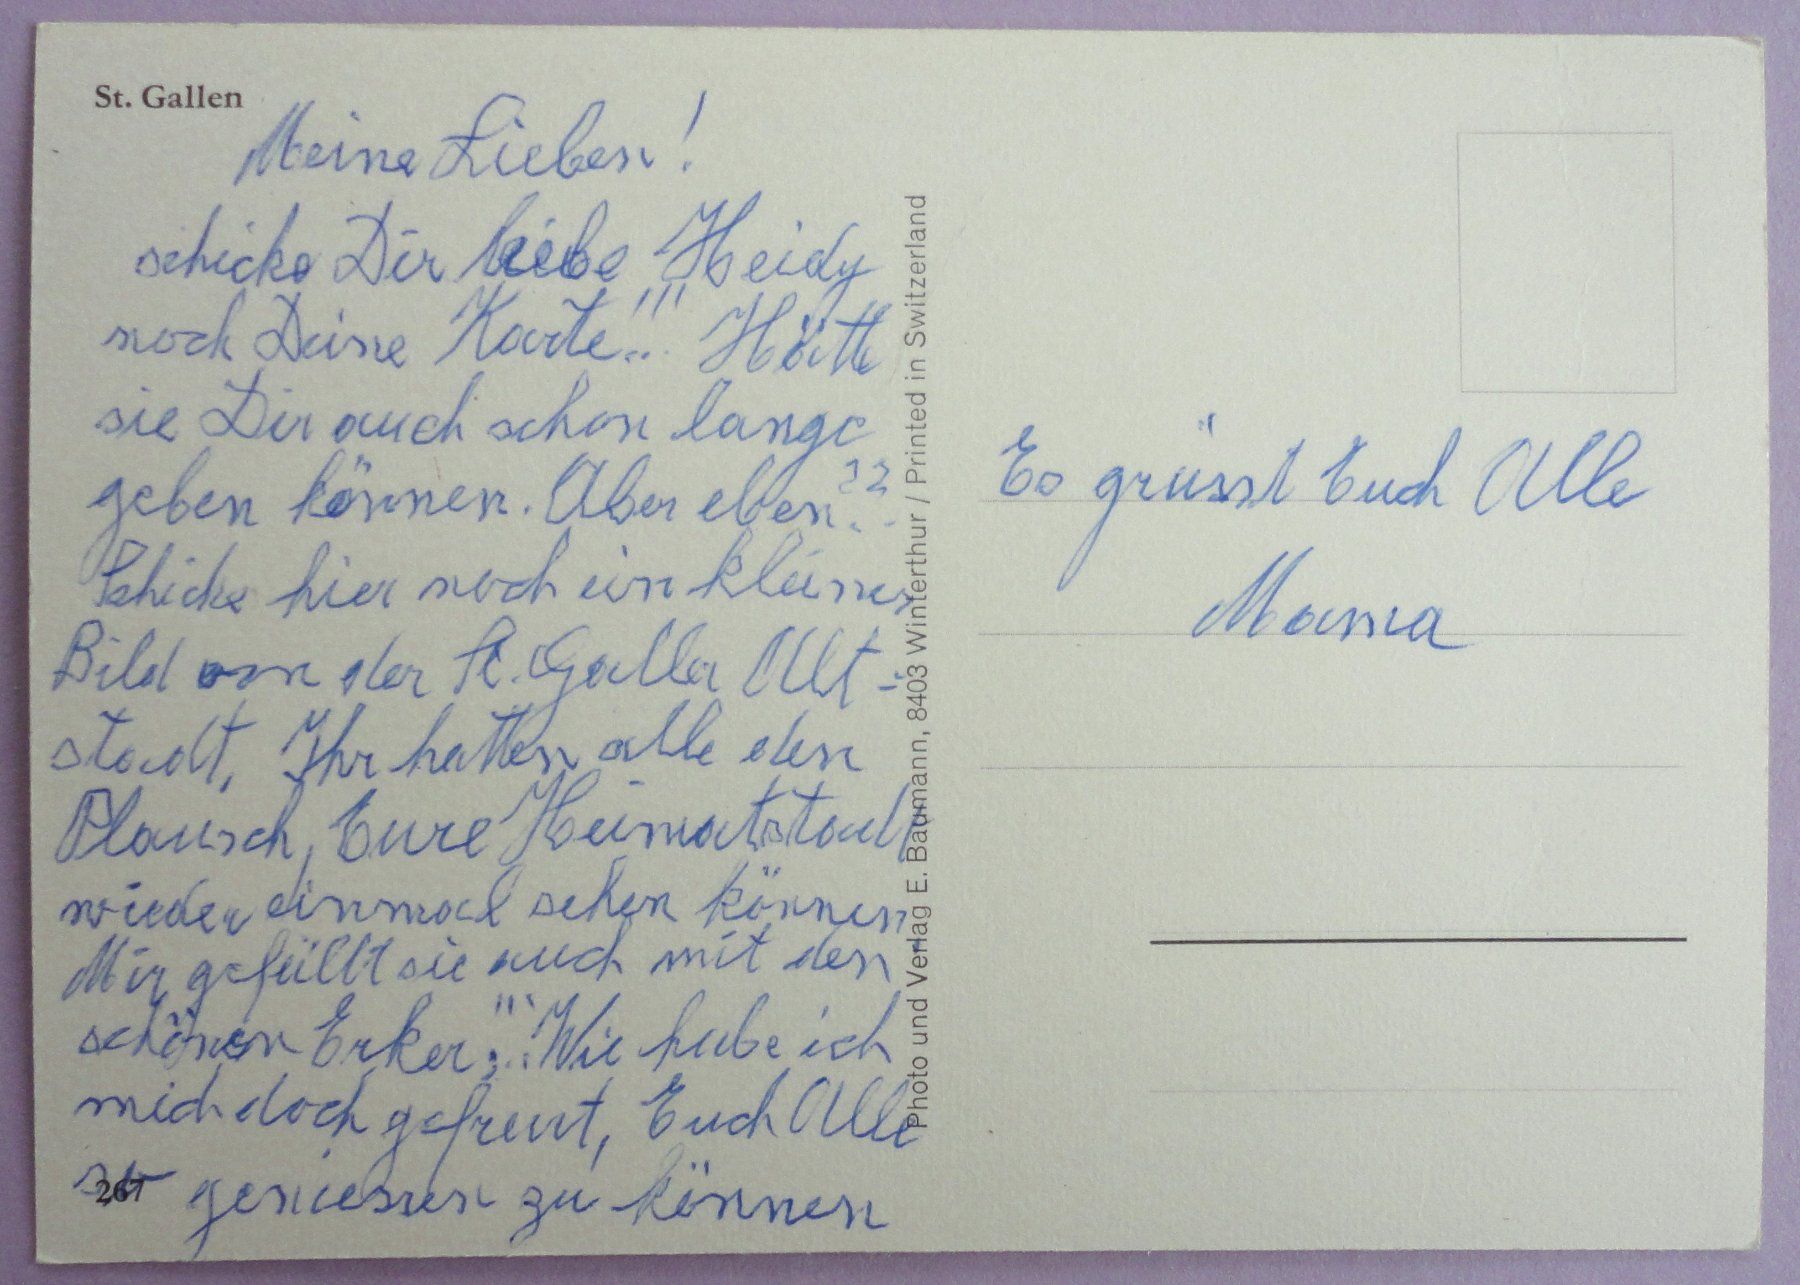 St. Gallen
Meine Lieben!
schicke Dir liebe Heidy
noch Deine Karte!!! Hätte
sie Dir auch schon lange
geben können. Aber eben??
Schicke hier noch ein kleines
Bild von der St. Galler Alt-
stadt, Ihr hatten alle den
Plausch, Eure Heimatstadt
wieder einmal sehen können
Mir gefällt sie auch mit den
schönen Erker!!! Wie habe ich
mich doch gefreut, Euch Alle
geniessen zu können
267
Photo und Verlag E. Baumann, 8403 Winterthur / Printed in Switzerland
Es grüsst Euch Alle
Mama